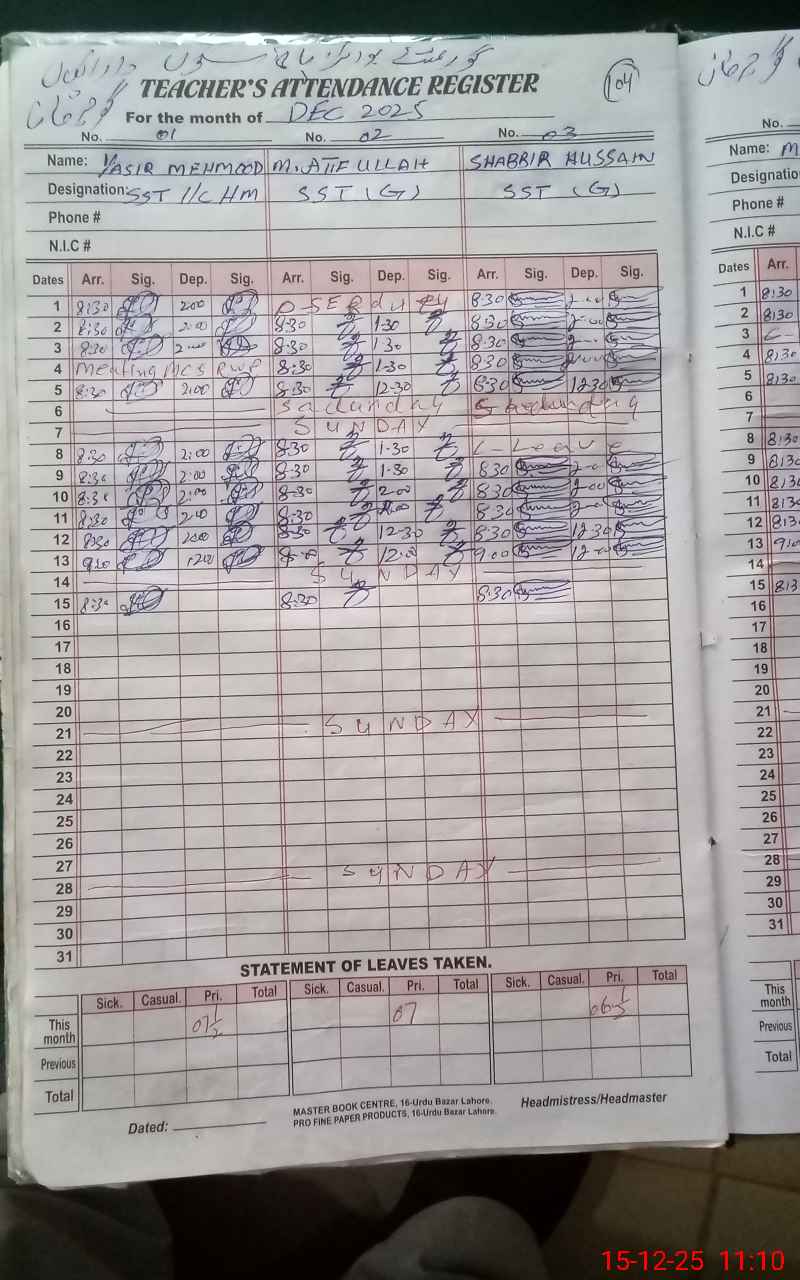 TEACHER'S ATTENDANCE REGISTER
104
For the month of DEC 2025
No. 01 No. 02 No. 03 No.
Name: YASIR MEHMOOD M. ATIF ULLAH SHABBIR HUSSAIN Name: M
Designation: SST I/C HM SST (G) SST (G) Designatio
Phone # Phone #
N.I.C # N.I.C #
Dates Arr. Sig. Dep. Sig. Arr. Sig. Dep. Sig. Arr. Sig. Dep. Sig. Dates Arr.
1 8:30 2:00 8:30 2:00 1 8:30
2 8:30 2:00 8:30 1:30 8:30 2:00 2 8:30
3 8:30 2:00 8:30 1:30 8:30 2:00 3 L-
4 Meeting 8:30 1:30 8:30 2:00 4 8:30
5 8:30 2:00 8:30 12-30 8:30 12:30 5 8:30
6 6
7 SUNDAY 7
8 8:30 2:00 8:30 1-30 L-Leave 8 8:30
9 8:30 2:00 8:30 1-30 8:30 2:00 9 8:30
10 8:30 2:00 8:30 2:00 8:30 2:00 10 8:30
11 8:30 2:00 8:30 8:30 2:00 11 8:30
12 8:30 8:30 12-30 8:30 12:30 12 8:30
13 9:00 12:00 9:00 12:00 13 9:0
14 SUNDAY 14
15 8:30 8:30 8:30 15 8:3
16 16
17 17
18 18
19 19
20 20
21 SUNDAY 21
22 22
23 23
24 24
25 25
26 26
27 27
28 SUNDAY 28
29 29
30 30
31 31
STATEMENT OF LEAVES TAKEN.
Sick. Casual. Pri. Total Sick. Casual. Pri. Total Sick. Casual. Pri. Total
This month 07 This month
Previous Previous
Total Total
Dated: MASTER BOOK CENTRE, 16-Urdu Bazar Lahore. Headmistress/Headmaster
PRO FINE PAPER PRODUCTS, 16-Urdu Bazar Lahore.
15-12-25 11:10